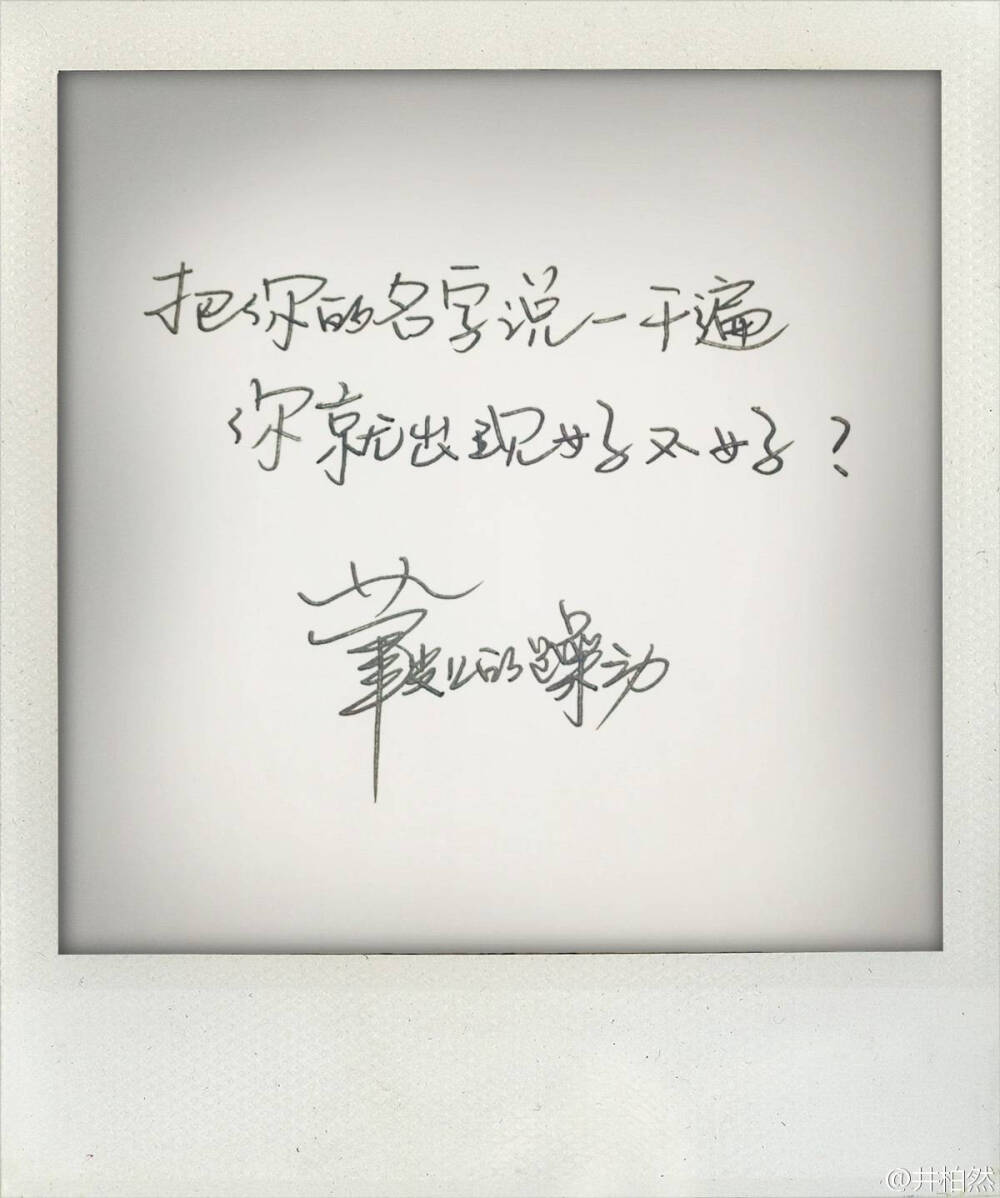 把你的名字说一千遍
你就出现好不好?
的躁动
@井柏然